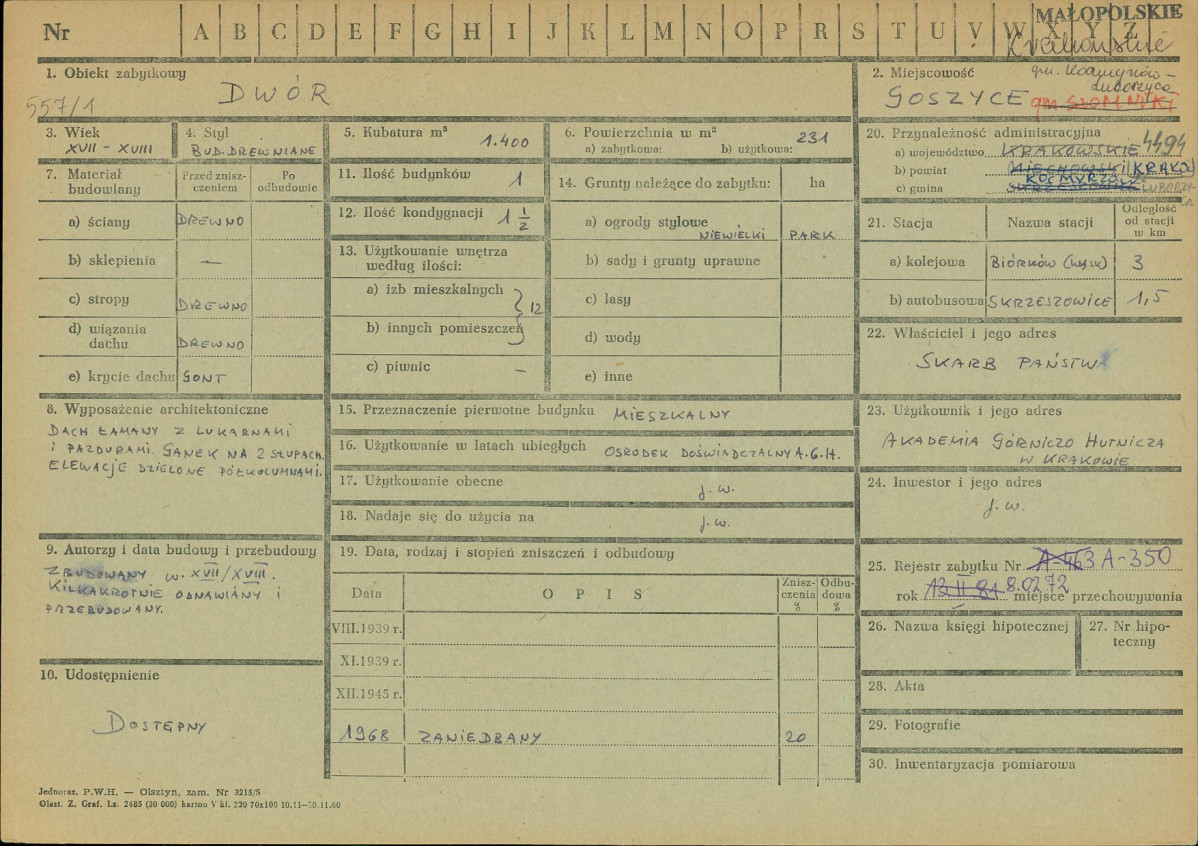 Nr A B C D E F G H I J K L M N O P R S T U V W X Y Z
MAŁOPOLSKIE
1. Obiekt zabytkowy
DWÓR
557/1
2. Miejscowość
GOSZYCE
gm. Kocmyrzów-
Luborzyca
gm. SŁOMNIKI
3. Wiek
XVII - XVIII
4. Styl
BUD. DREWNIANE
5. Kubatura m³ 1.400
6. Powierzchnia w m² 231
a) zabytkowa: b) użytkowa:
7. Materiał budowlany
Przed zniszczeniem
Po odbudowie
a) ściany DREWNO
b) sklepienia —
c) stropy DREWNO
d) wiązania dachu DREWNO
e) krycie dachu GONT
8. Wyposażenie architektoniczne
DACH ŁAMANY Z LUKARNAMI
I PAZDURAMI. GANEK NA 2 SŁUPACH.
ELEWACJE DZIELONE PÓŁKOLUMNAMI.
9. Autorzy i data budowy i przebudowy
ZBUDOWANY W. XVII/XVIII.
KILKAKROTNIE ODNAWIANY I
PRZEBUDOWANY.
10. Udostępnienie
DOSTĘPNY
11. Ilość budynków 1
12. Ilość kondygnacji 1 1/2
13. Użytkowanie wnętrza
według ilości:
a) izb mieszkalnych
} 12
b) innych pomieszczeń
c) piwnic —
14. Grunty należące do zabytku: ha
a) ogrody stylowe
NIEWIELKI PARK
b) sady i grunty uprawne
c) lasy
d) wody
e) inne
15. Przeznaczenie pierwotne budynku MIESZKALNY
16. Użytkowanie w latach ubiegłych OŚRODEK DOŚWIADCZALNY A.G.H.
17. Użytkowanie obecne j.w.
18. Nadaje się do użycia na j.w.
19. Data, rodzaj i stopień zniszczeń i odbudowy
Data OPIS Zniszczenia % Odbudowa %
VIII.1939 r.
XI.1939 r.
XII.1945 r.
1968 ZANIEDBANY 20
20. Przynależność administracyjna
4494
a) województwo KRAKOWSKIE
b) powiat MIECHOWSKI KRAKÓW
c) gmina KOCMYRZÓW
LUBORZYCA
21. Stacja Nazwa stacji Odległość od stacji w km
a) kolejowa BIÓRKÓW (WĄSK) 3
b) autobusowa SKRZESZOWICE 1,5
22. Właściciel i jego adres
SKARB PAŃSTWA
23. Użytkownik i jego adres
AKADEMIA GÓRNICZO HUTNICZA
W KRAKOWIE
24. Inwestor i jego adres
j.w.
25. Rejestr zabytku Nr A-463 A-350
rok 8.02.72 miejsce przechowywania
26. Nazwa księgi hipotecznej
27. Nr hipoteczny
28. Akta
29. Fotografie
30. Inwentaryzacja pomiarowa
Jednoraz. P.W.H. — Olsztyn, zam. Nr 3215/S
Olszt. Z. Graf. Lz. 2485 (20 000) karton V kl. 220 70x100 10.11—30.11.60